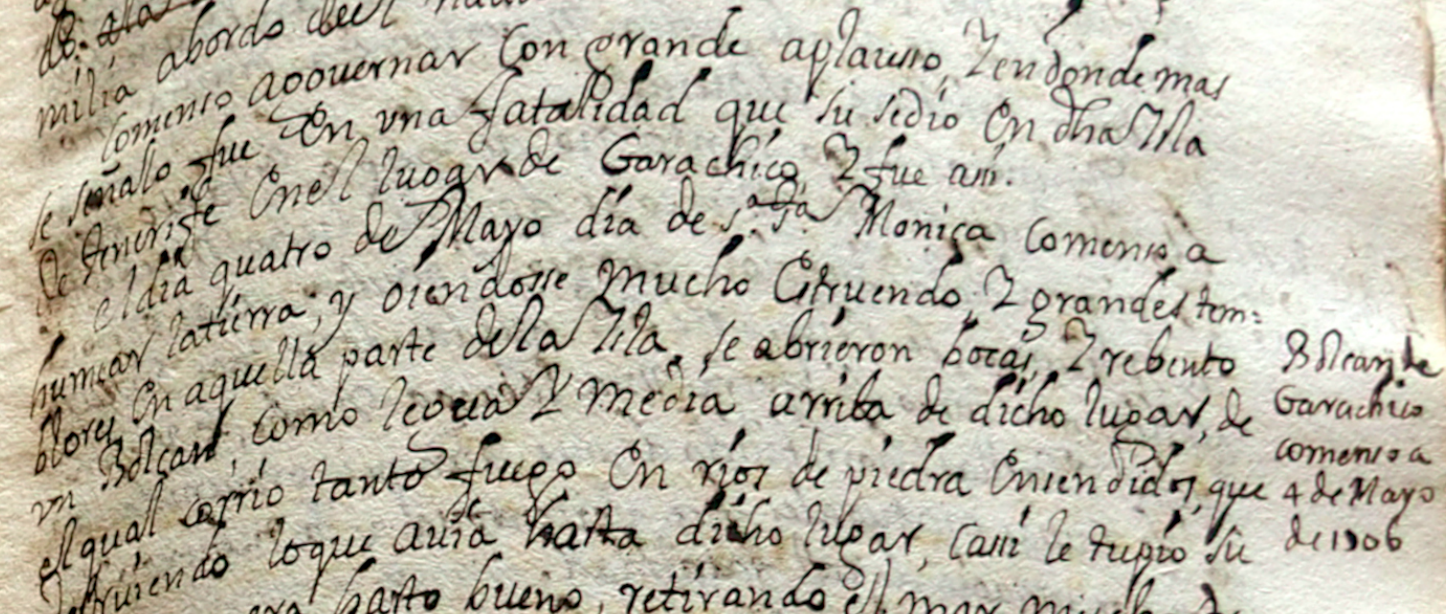 milia abordo del
Comenso agouernar Con grande aplauso, Y en donde mas
se señalo fue En vna fatalidad que su sedio En dha Isla
de tenerife En el lugar de Garachico, Y fue asi.
el dia quatro de Mayo dia de s.ta Monica Comenso a
humear latierra; y oiendosse mucho Estruendo, Y grandes tem:
blores En aquella parte dela Isla, se abrieron bocas, Y rebento
vn Bolcan, como legua Y media arriba de dicho lugar, de
el qual corrio tanto fuego En rios de piedra Ensendidos, que
destruiendo loque auia hasta dicho lugar, Casi le tupio su
era harto bueno, retirando el mar
Bolcan de
Garachico
comenso a
4 de Mayo
de 1706